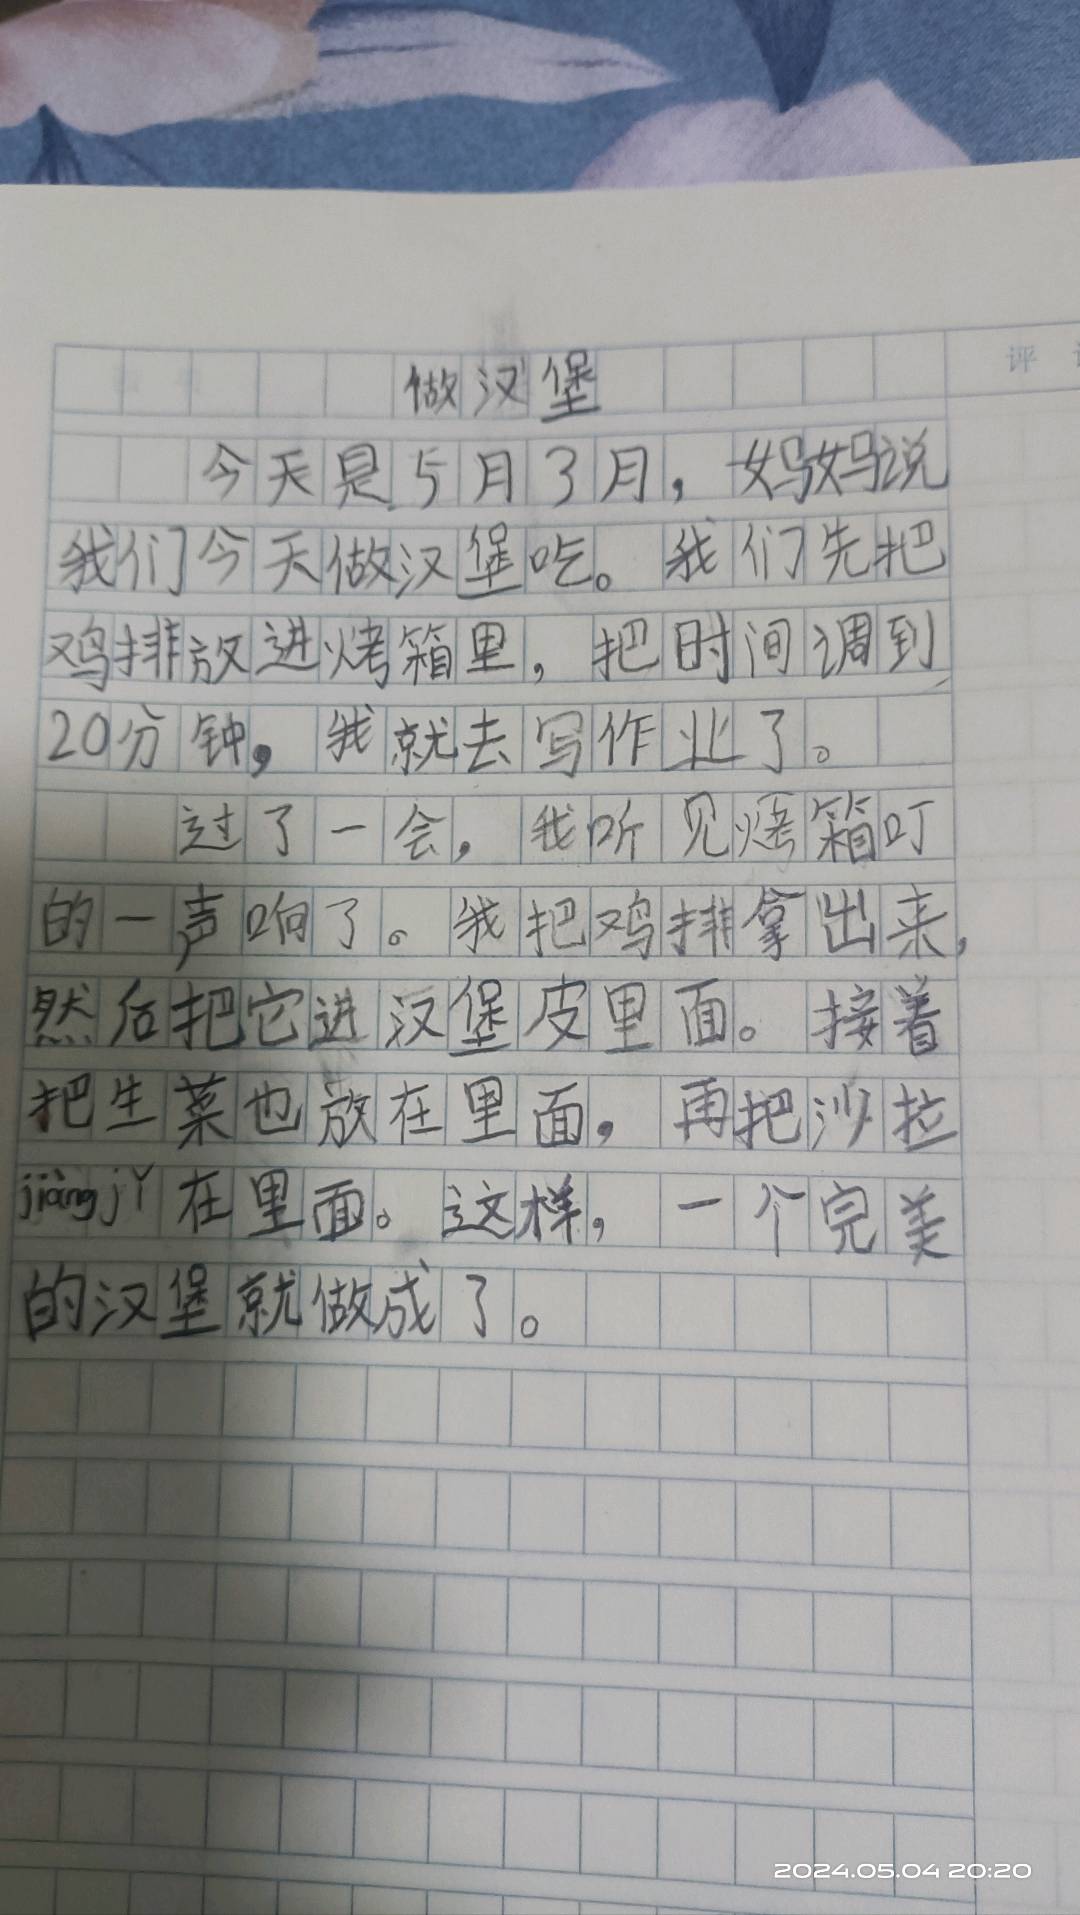 评
做汉堡
今天是5月3月，妈妈说
我们今天做汉堡吃。我们先把
鸡排放进烤箱里，把时间调到
20分钟，我就去写作业了。
过了一会，我听见烤箱叮
的一声响了。我把鸡排拿出来，
然后把它进汉堡皮里面。接着
把生菜也放在里面，再把沙拉
jiàng jǐ 在里面。这样，一个完美
的汉堡就做成了。
2024.05.04 20:20